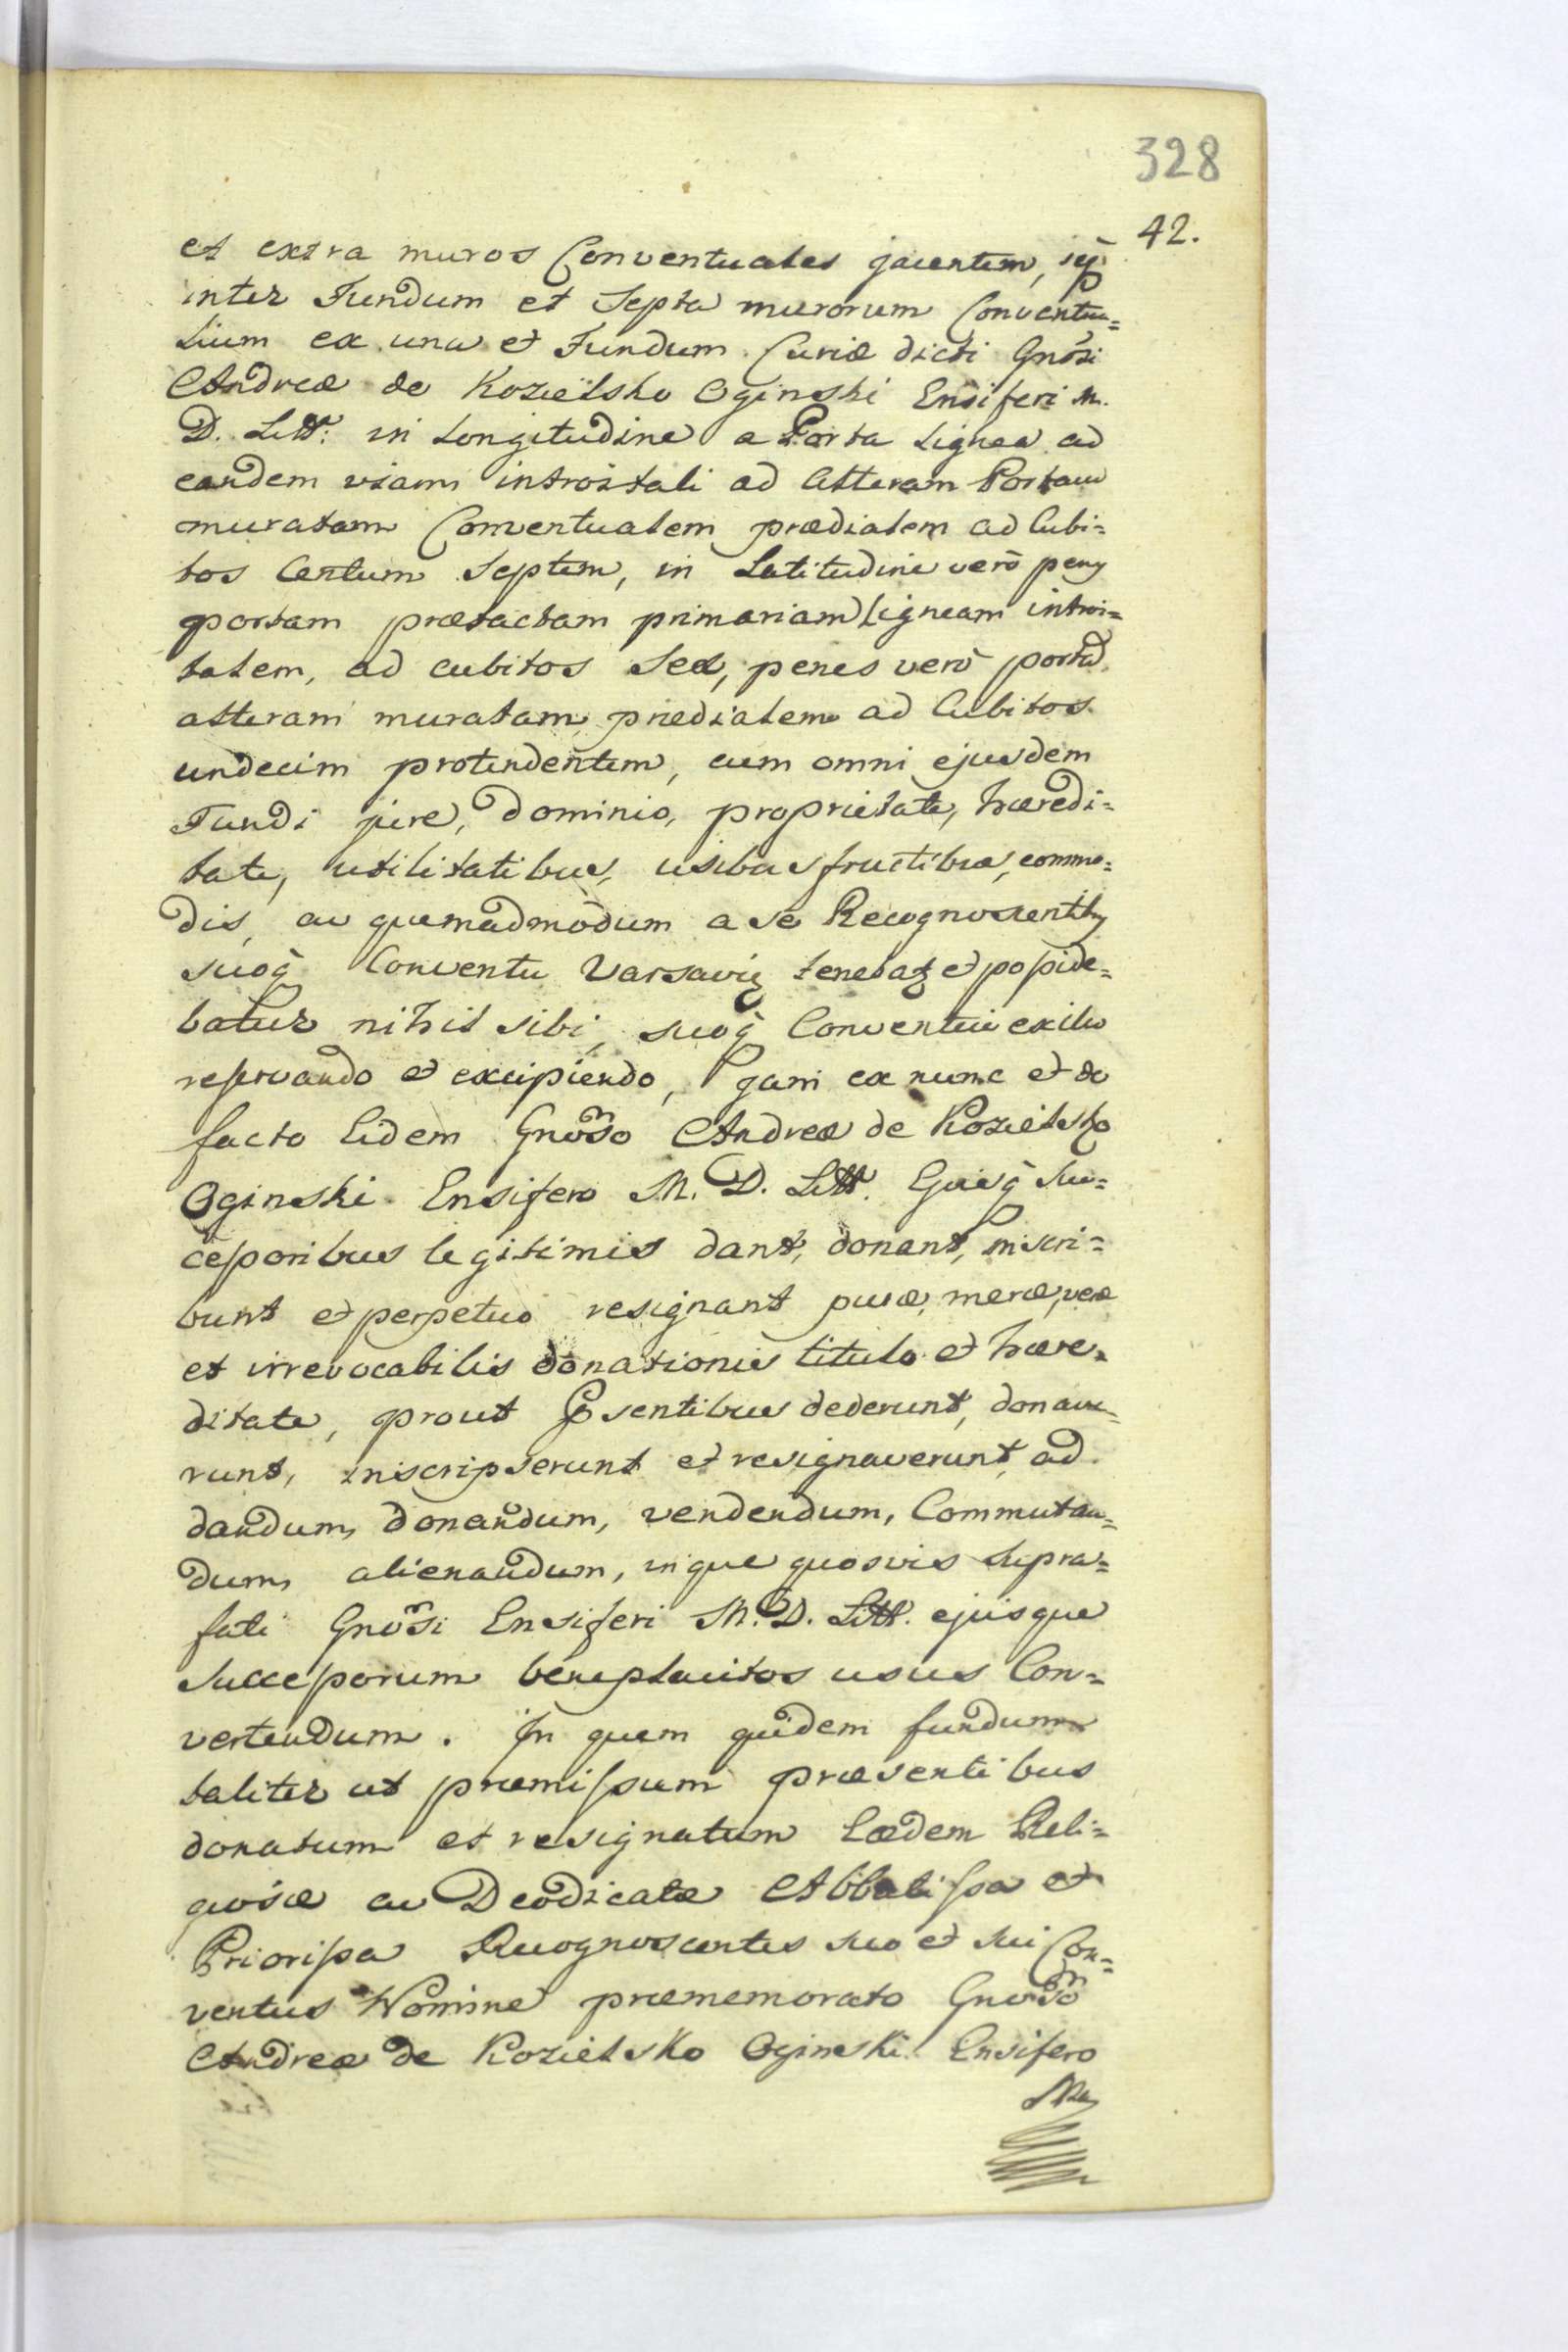 328
42.
et extra muros Conventuales jacentem,
inter Fundum et Septa murorum Conventua=
lium ex una et Fundum Curiæ dicti Gnosi
Andreæ de Kozielsko Oginski Ensiferi M.
D. Litt: in Longitudine a Porta Lignea ad
eandem viam introitali ad Alteram Portam
muratam Conventualem prædialem ad Cubi=
tos Centum Septem, in Latitudine verò peng
portam prætactam primariam Ligneam introi=
talem, ad cubitos Sex, penes verò portã
alteram muratam prædialem ad Cubitos
undecim protendentem, cum omni ejusdem
Fundi jure, Dominio, proprietate, hæredi=
tate, utilitatibus, usibusfructibus, commo=
dis, ac quemadmodum a se Recognoscentibg
suoq̃ Conventu Varsavię tenebatz et posside=
batur nihil sibi, suoq̃ Conventui exilio
reservando et excipiendo, jam ex nunc et de
facto Eidem Gnõso Andreæ de Kozielsko
Oginski Ensifero M. D. Litt. Ejusq̃ Suc=
cessoribus legitimis dant, donant, inscri=
bunt et perpetuo resignant puræ, meræ, veræ
et irrevocabilis donationis titulo et hære=
ditate, prout Psentibus dederunt, donave=
runt, inscripserunt et resignaverunt, ad
dandum, donandum, vendendum, Commutan=
dum, alienandum, inque quosvis Supra=
fati Gnõsi Ensiferi M. D. Litt. ejusque
Successorum beneplacitos usus Con=
vertendum. In quem quidem fundum
taliter ut præmissum præsentibus
donatum et resignatum Eædem Reli=
giosæ ac Deodicatæ Abbatissa et
Priorissa Recognoscentes suo et sui Con=
ventus Nomine præmemorato Gnõso
Andreæ de Kozielsko Oginski Ensifero